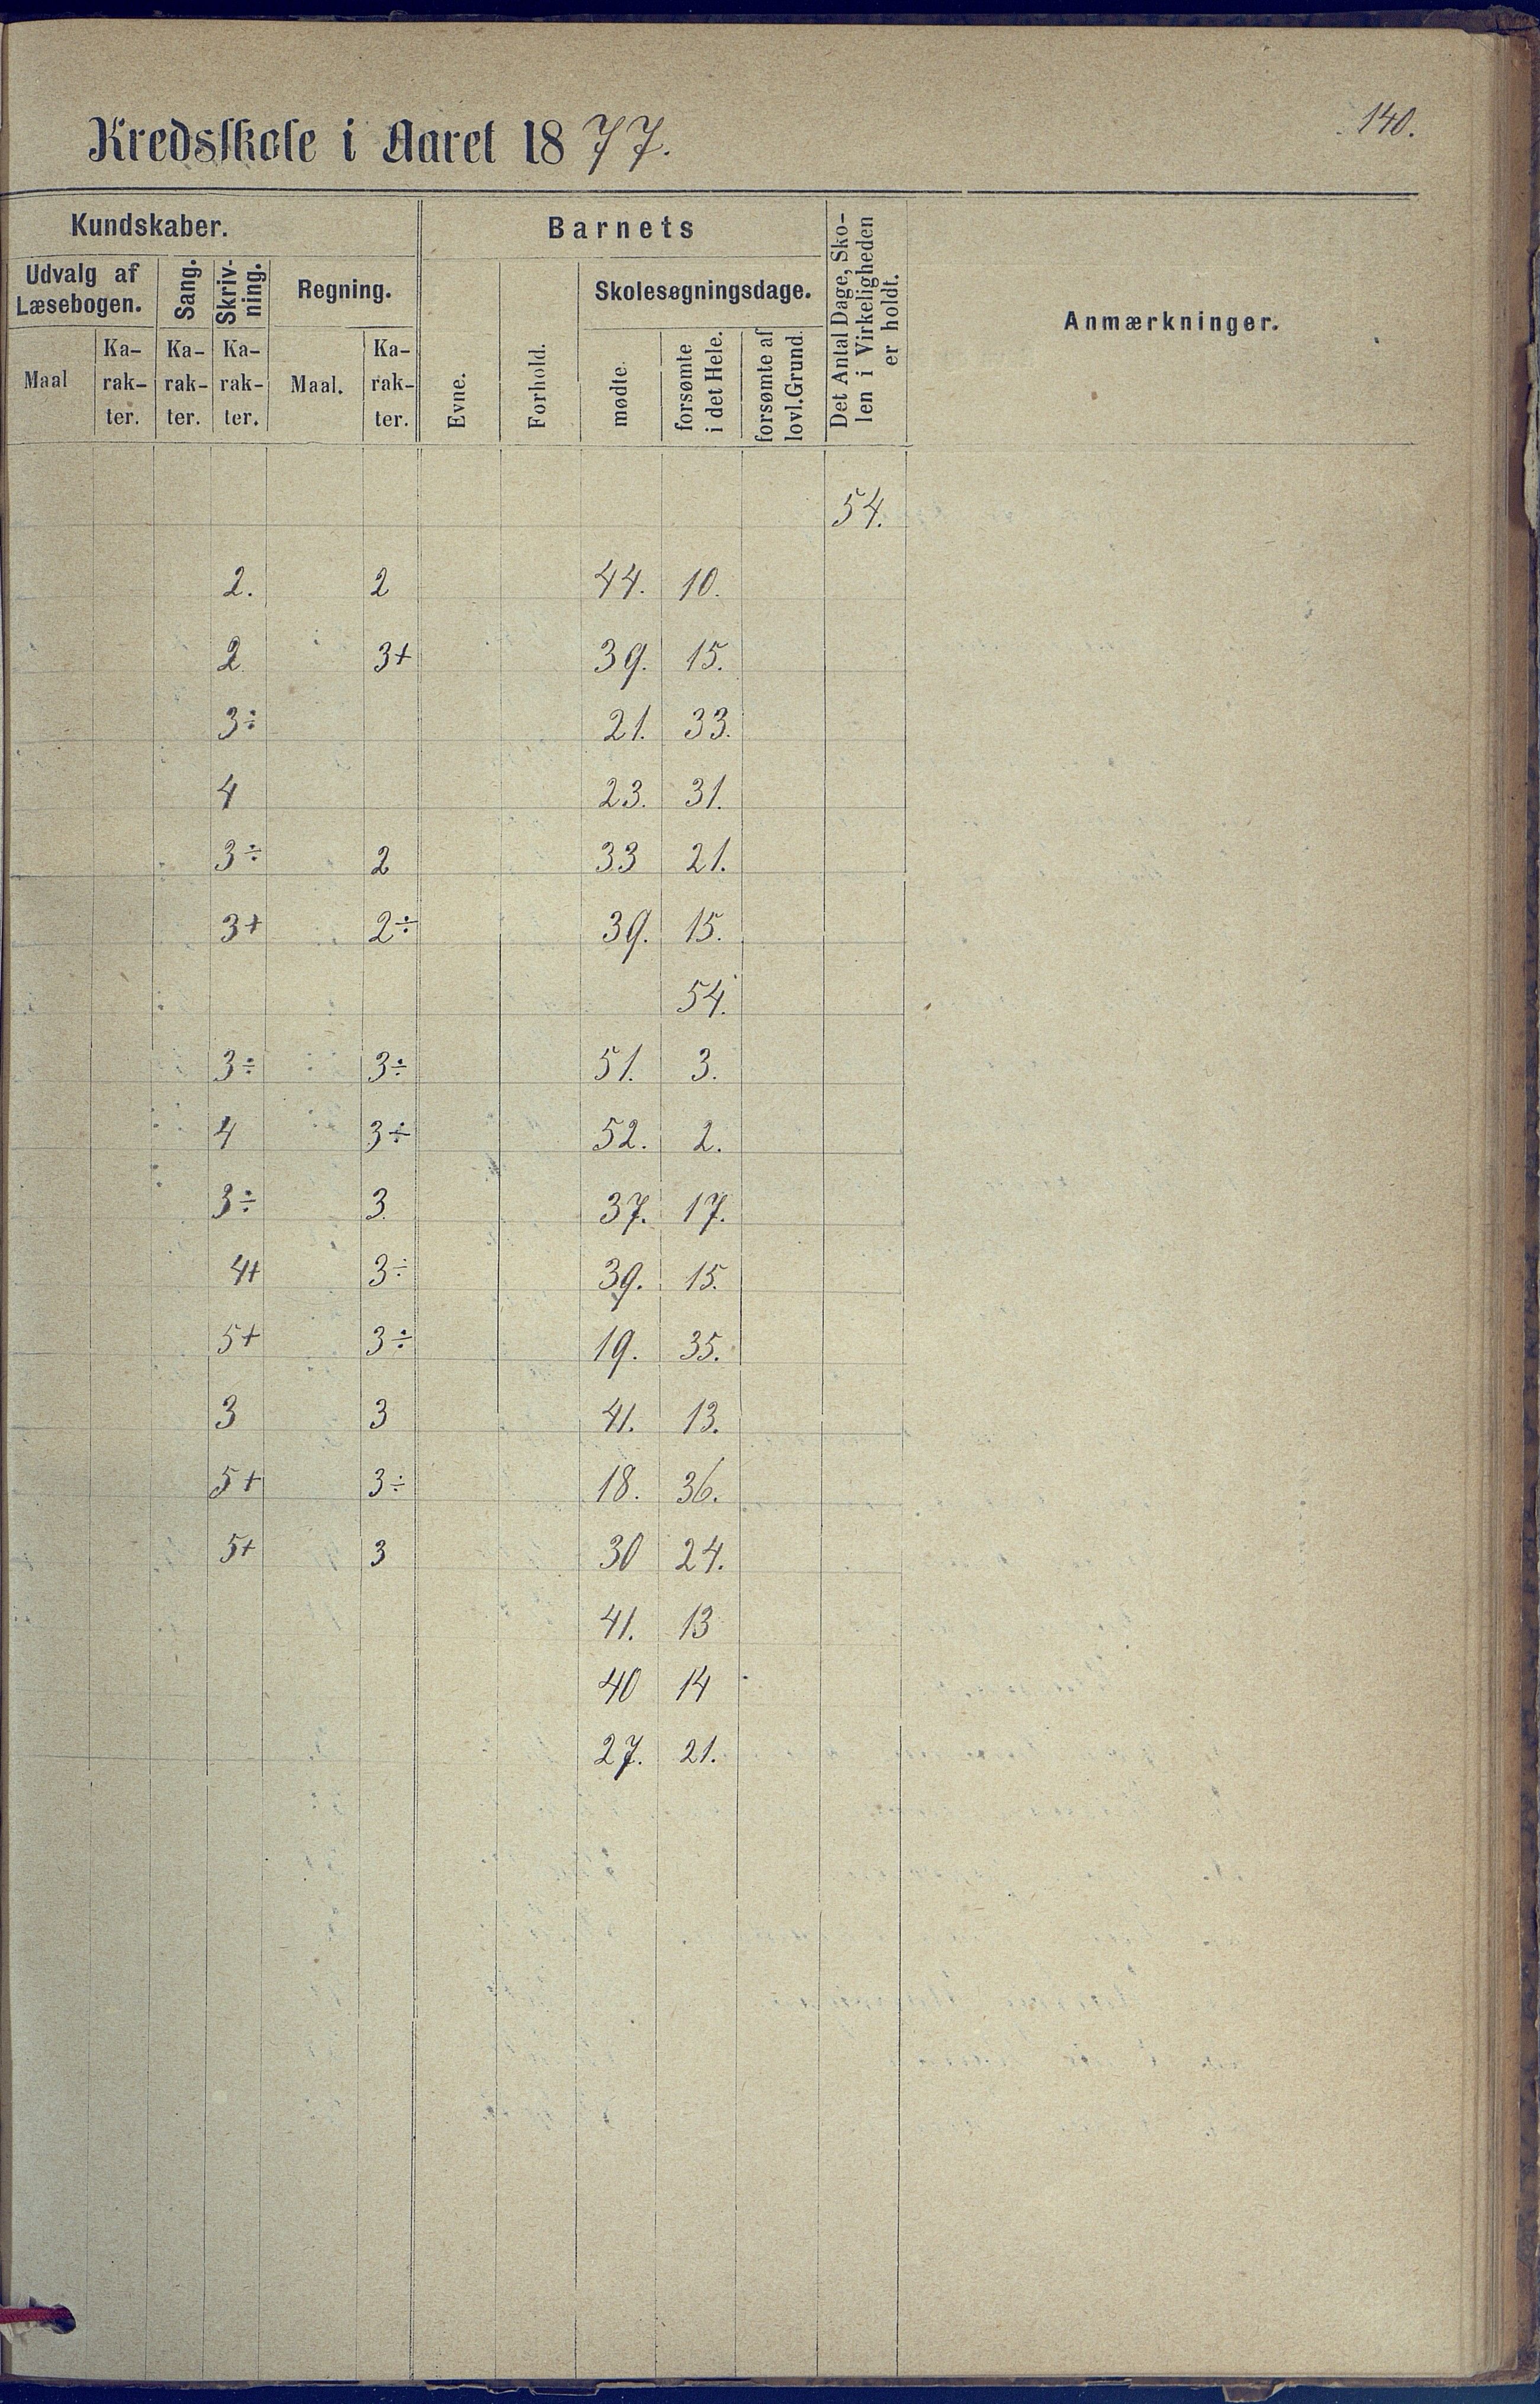 140.
Kredsskole i Aaret 1877.
Kundskaber.
Barnets
Det Antal Dage, Sko-
len i Virkeligheden
er holdt.
Anmærkninger.
Udvalg af
Læsebogen.
Sang.
Skriv-
ning.
Regning.
Evne.
Forhold.
Skolesøgningsdage.
Maal
Ka-
rak-
ter.
Ka-
rak-
ter.
Ka-
rak-
ter.
Maal.
Ka-
rak-
ter.
mødte.
forsømte
i det Hele.
forsømte af
lovl. Grund.
54.
2. 2 44. 10.
2 3+ 39. 15.
3÷ 21. 33.
4 23. 31.
3÷ 2 33 21.
3+ 2÷ 39. 15.
54.
3÷ 3÷ 51. 3.
4 3÷ 52. 2.
3÷ 3. 37. 17.
4+ 3÷ 39. 15.
5+ 3÷ 19. 35.
3 3 41. 13.
5+ 3÷ 18. 36.
5+ 3 30 24.
41. 13
40 14
27. 21.